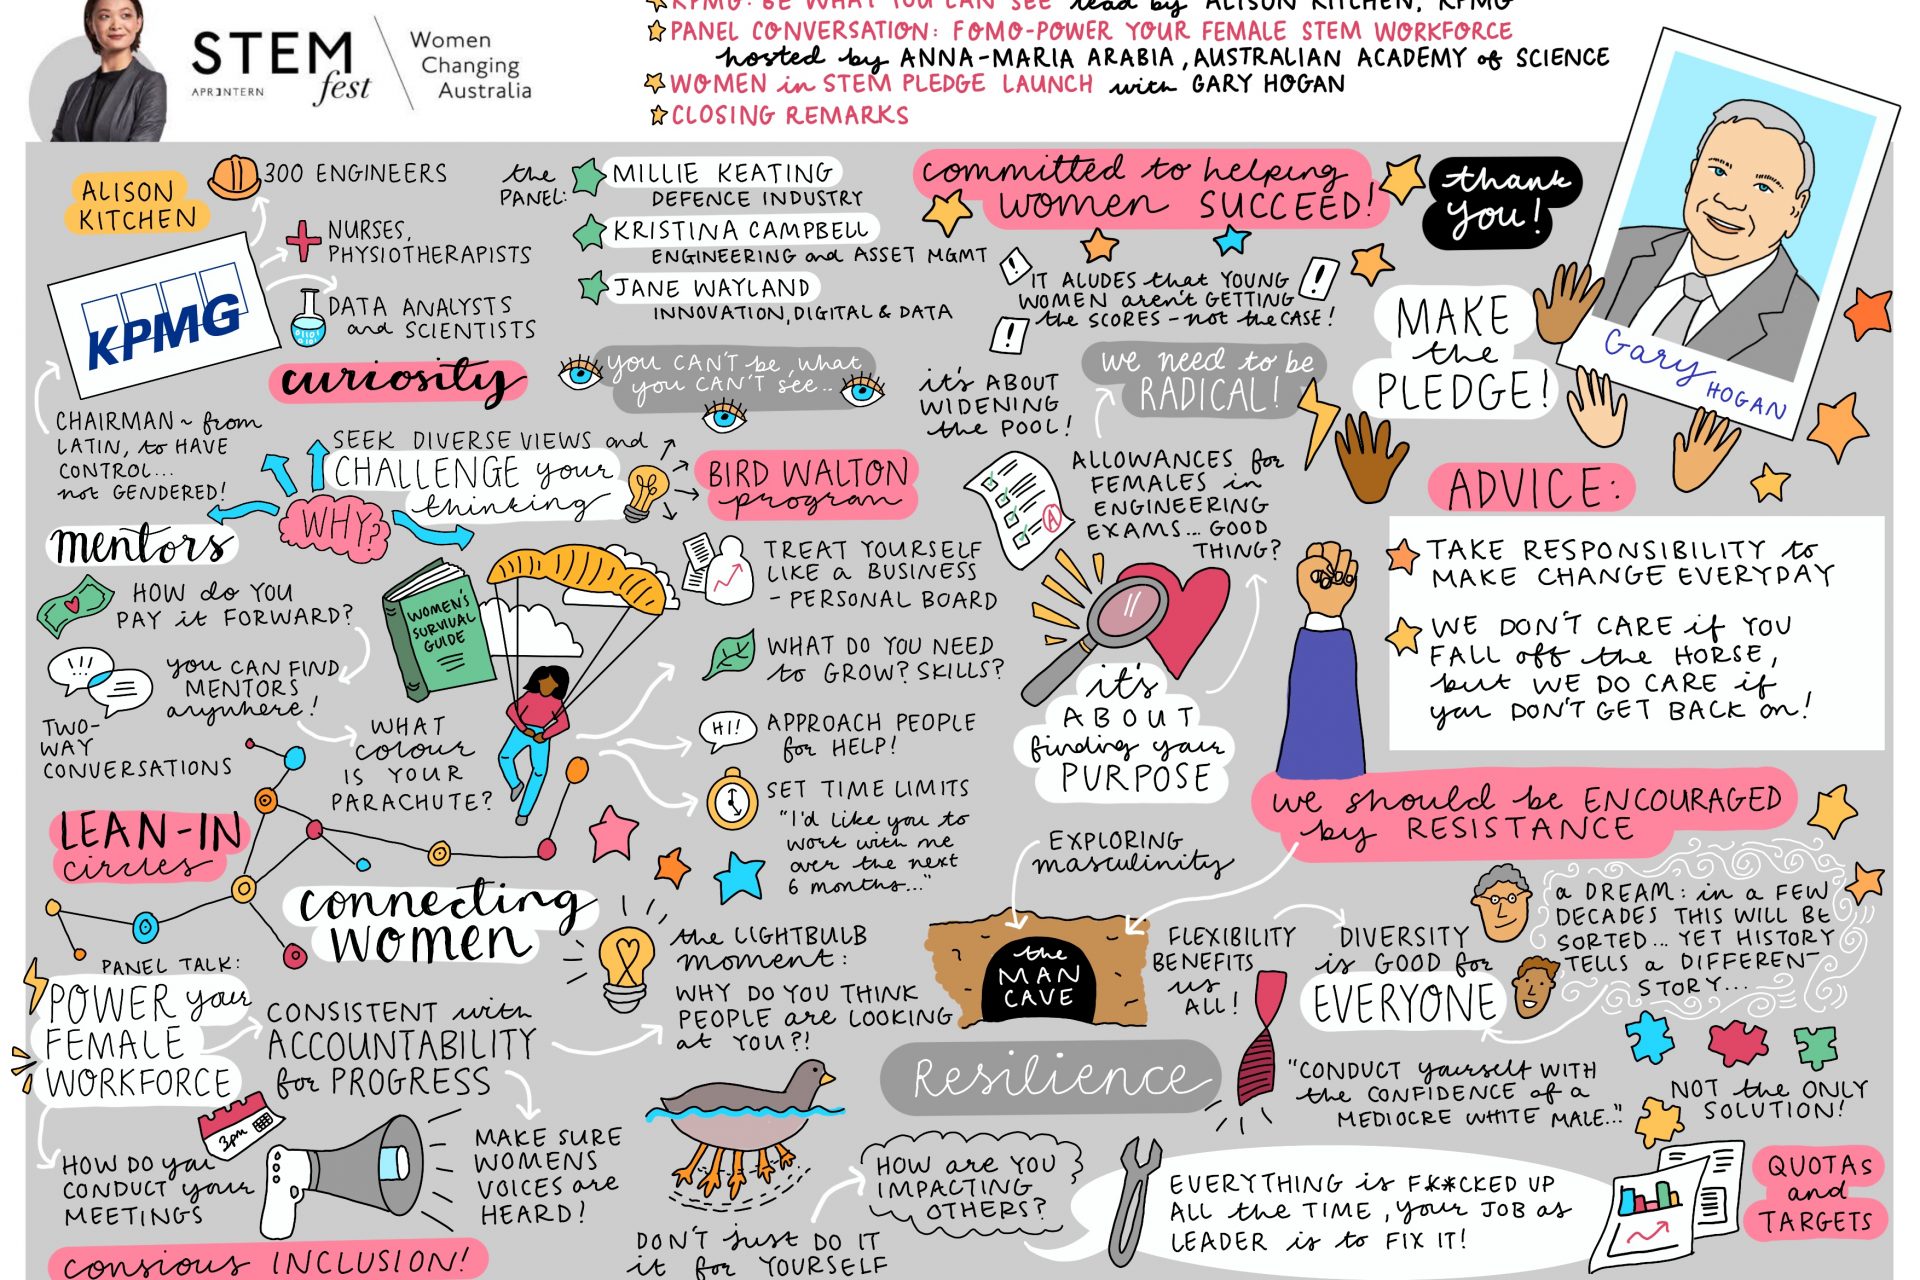 STEM
fest
APR3NTERN
Women
Changing
Australia
KPMG: BE WHAT YOU CAN SEE lead by ALISON KITCHEN, KPMG
PANEL CONVERSATION: FOMO-POWER YOUR FEMALE STEM WORKFORCE
hosted by ANNA-MARIA ARABIA, AUSTRALIAN ACADEMY of SCIENCE
WOMEN in STEM PLEDGE LAUNCH with GARY HOGAN
CLOSING REMARKS
ALISON
KITCHEN
300 ENGINEERS
NURSES,
PHYSIOTHERAPISTS
DATA ANALYSTS
and SCIENTISTS
KPMG
CHAIRMAN ~ from
LATIN, to HAVE
CONTROL...
not GENDERED!
curiosity
the
PANEL:
MILLIE KEATING
DEFENCE INDUSTRY
KRISTINA CAMPBELL
ENGINEERING and ASSET MGMT
JANE WAYLAND
INNOVATION, DIGITAL & DATA
you CAN'T be, what
you CAN'T SEE...
SEEK DIVERSE VIEWS and
CHALLENGE your
thinking
WHY?
mentors
HOW do YOU
PAY it FORWARD?
you CAN FIND
MENTORS
anywhere!
TWO-
WAY
CONVERSATIONS
WOMEN'S
SURVIVAL
GUIDE
WHAT
colour
IS YOUR
PARACHUTE?
BIRD WALTON
program
TREAT YOURSELF
LIKE a BUSINESS
- PERSONAL BOARD
WHAT DO YOU NEED
to GROW? SKILLS?
HI!
APPROACH PEOPLE
for HELP!
SET TIME LIMITS
"I'd like you to
work with me
over the next
6 months..."
LEAN-IN
circles
connecting
WOMEN
committed to helping
women SUCCEED!
thank
you!
IT ALUDES that YOUNG
WOMEN aren't GETTING
the SCORES - not the CASE!
it's ABOUT
WIDENING
the POOL!
we need to be
RADICAL!
ALLOWANCES for
FEMALES in
ENGINEERING
EXAMS... GOOD
THING?
A
it's
ABOUT
finding your
PURPOSE
MAKE
the
PLEDGE!
Gary
HOGAN
ADVICE:
TAKE RESPONSIBILITY to
MAKE CHANGE EVERYDAY
WE DON'T CARE if YOU
FALL off the HORSE,
but WE DO CARE if
you DON'T GET BACK on!
we should be ENCOURAGED
by RESISTANCE
EXPLORING
masculinity
the
MAN
CAVE
FLEXIBILITY
BENEFITS
us
ALL!
DIVERSITY
is GOOD for
EVERYONE
a DREAM: in a FEW
DECADES THIS WILL BE
SORTED... YET HISTORY
TELLS a DIFFERENT
STORY...
PANEL TALK:
POWER your
FEMALE
WORKFORCE
CONSISTENT with
ACCOUNTABILITY
for PROGRESS
the LIGHTBULB
moment:
WHY DO YOU THINK
PEOPLE are LOOKING
at YOU?!
Resilience
"CONDUCT yourself WITH
the CONFIDENCE of a
MEDIOCRE WHITE MALE..."
NOT the ONLY
SOLUTION!
3pm
HOW DO you
CONDUCT your
MEETINGS
MAKE SURE
WOMENS
VOICES are
HEARD!
consious INCLUSION!
DON'T just DO IT
it for YOURSELF
HOW are YOU
IMPACTING
OTHERS?
EVERYTHING is F**CKED UP
ALL the TIME, your JOB as
LEADER is to FIX IT!
QUOTAs
and
TARGETS